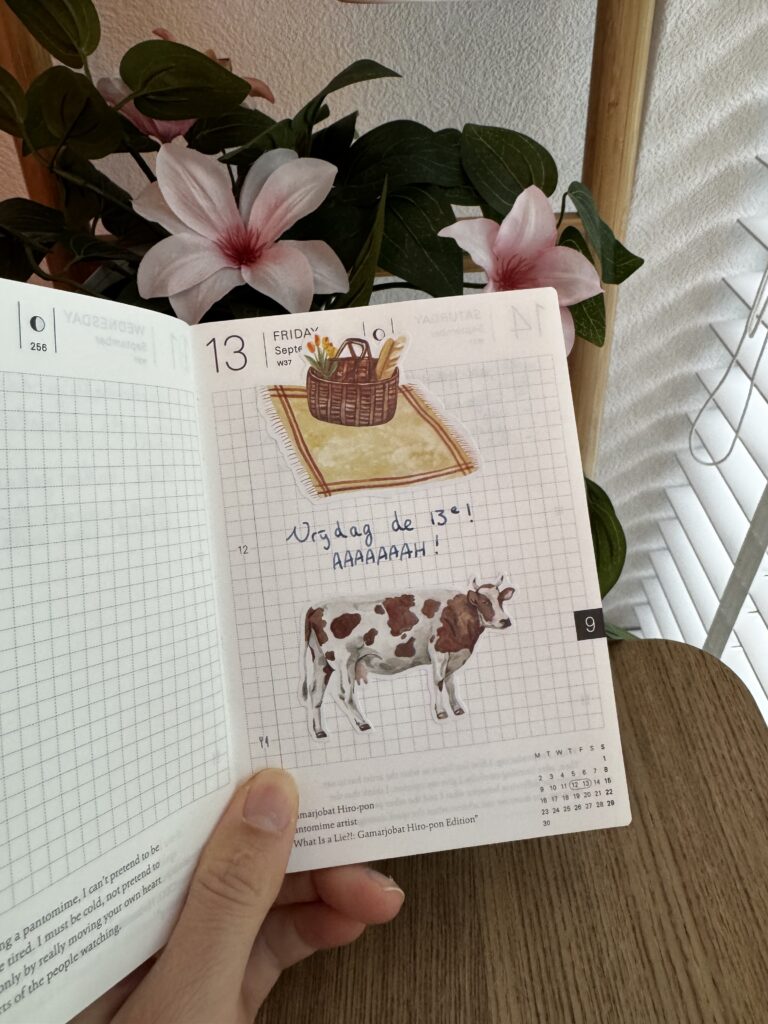 256
ng a pantomime, I can't pretend to be
e tired. I must be cold, not pretend to
only by really moving your own heart
rts of the people watching.
13 FRIDAY
Septe
W37
12
Vrijdag de 13e!
AAAAAAAH!
9
M T W T F S S
1
2 3 4 5 6 7 8
9 10 11 12 13 14 15
16 17 18 19 20 21 22
23 24 25 26 27 28 29
30
amarjobat Hiro-pon
antomime artist
What Is a Lie?!: Gamarjobat Hiro-pon Edition"